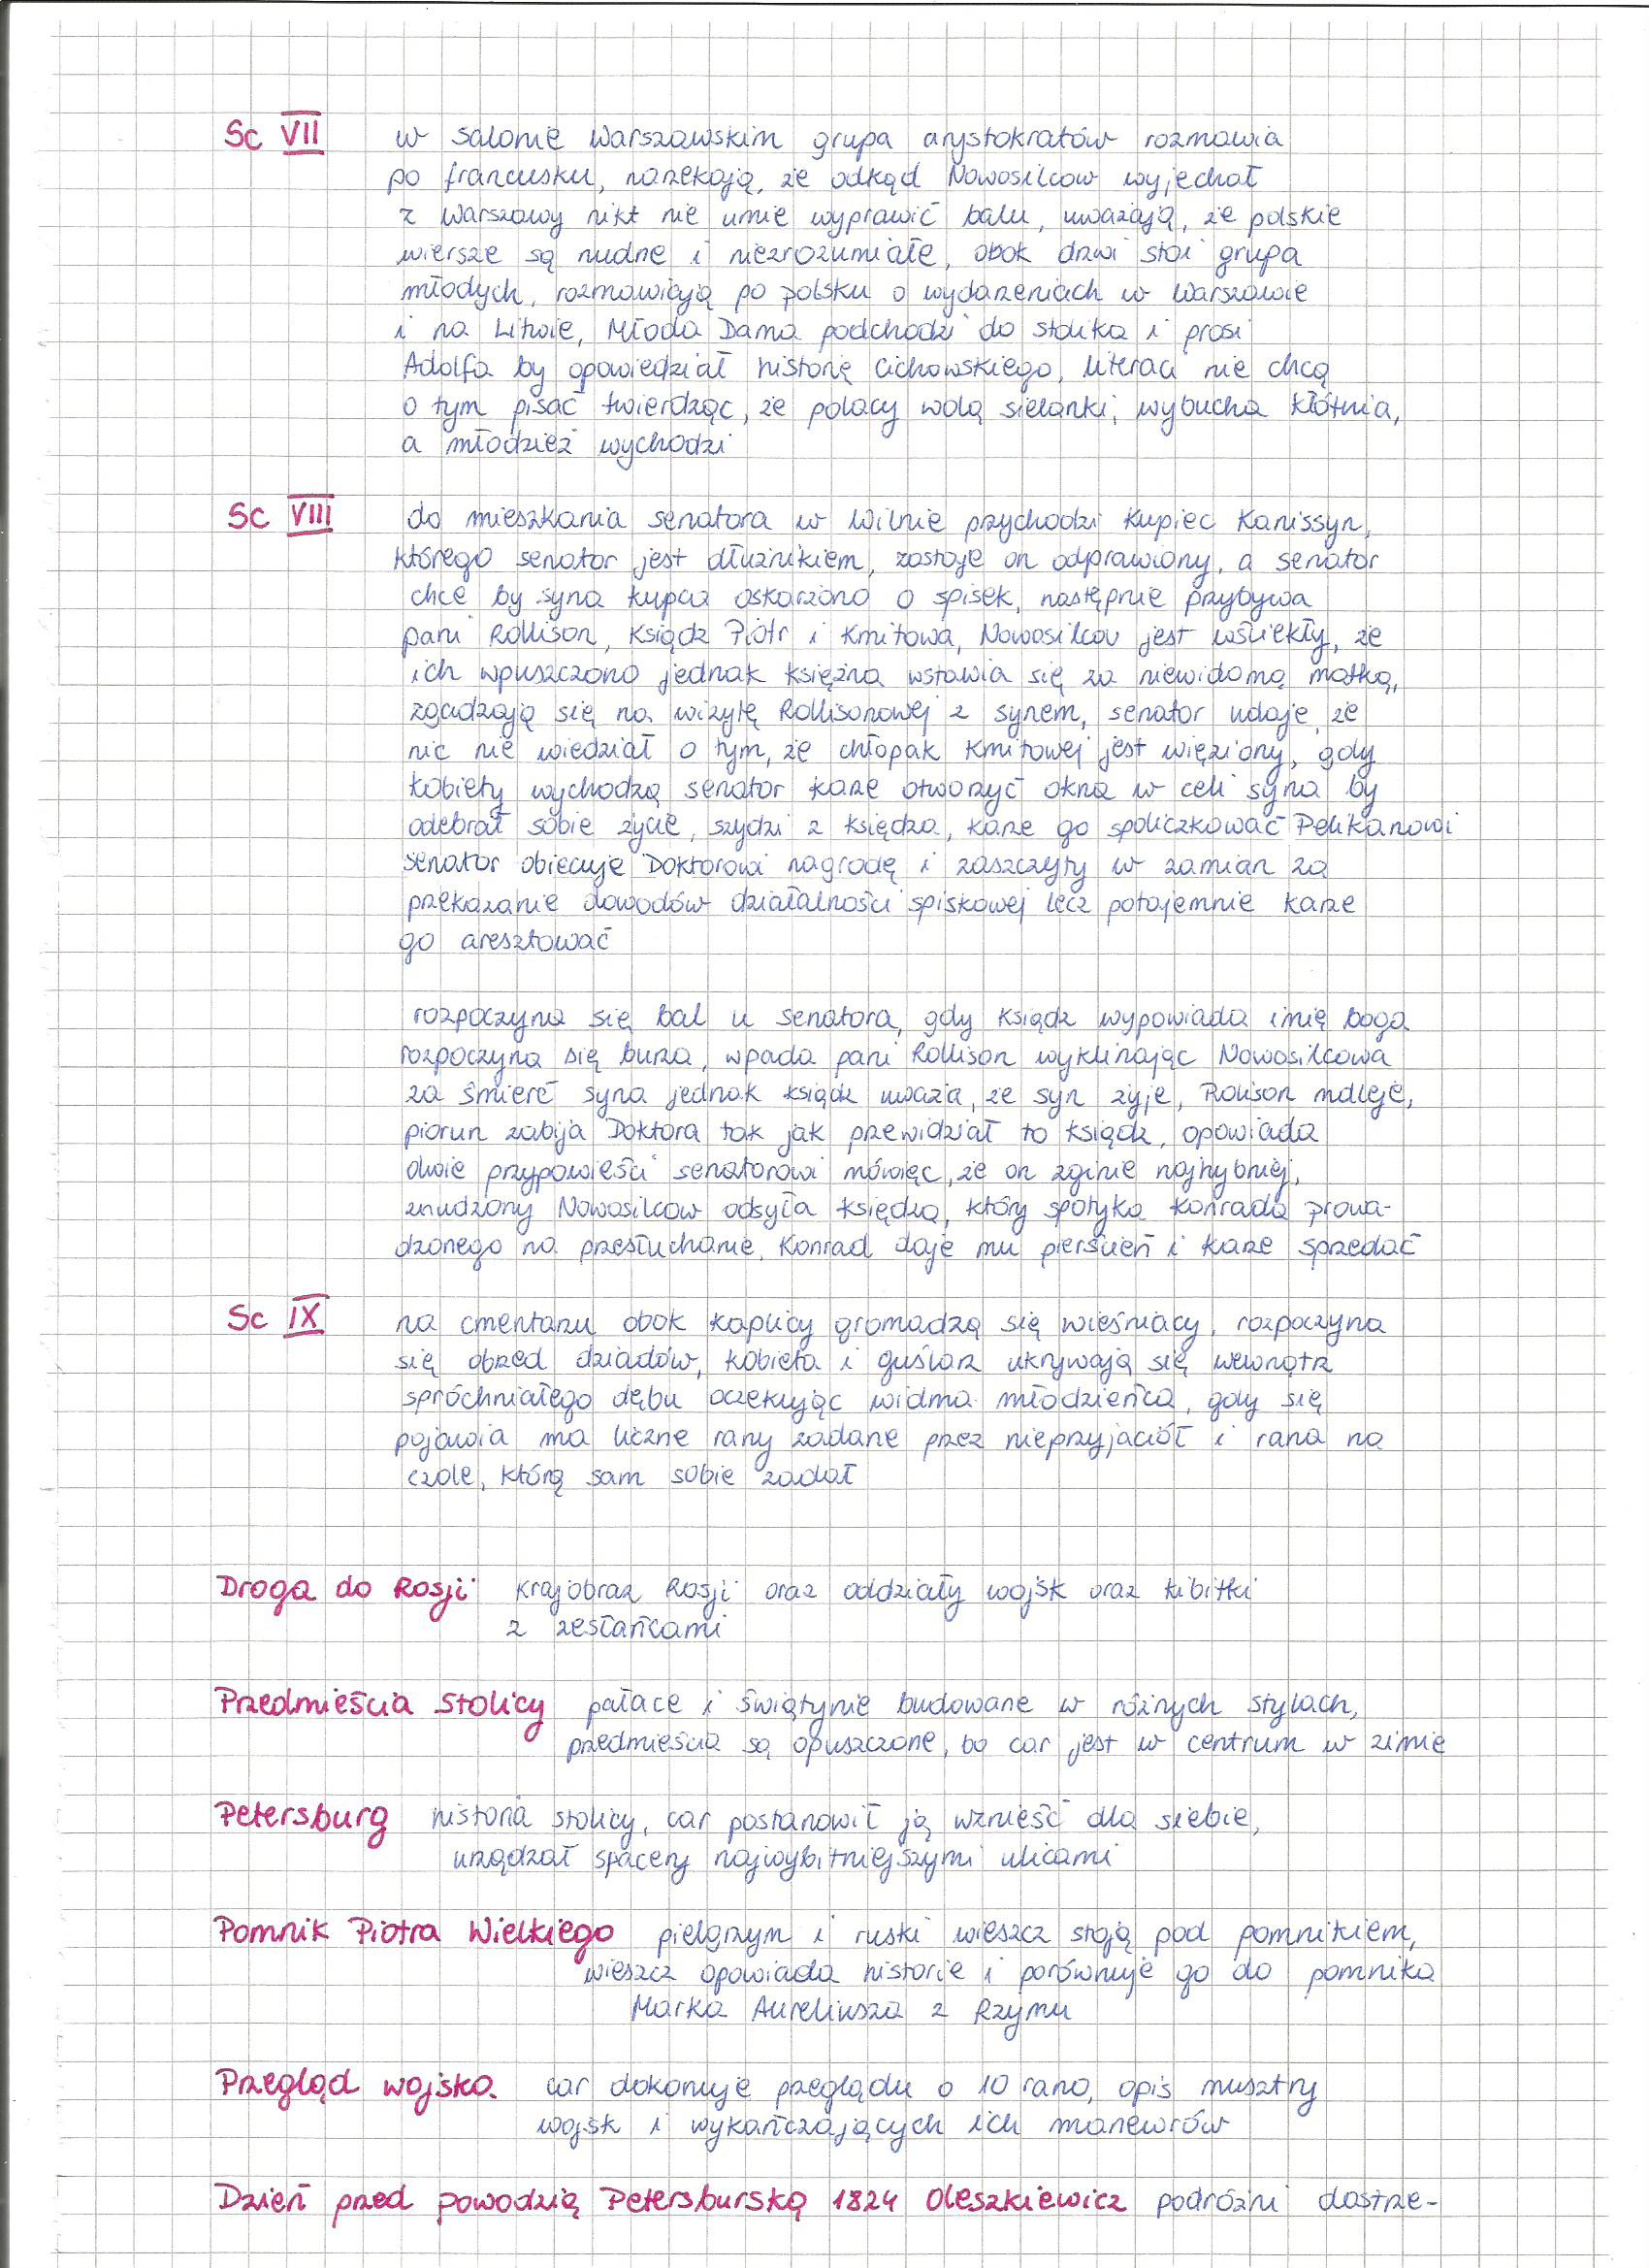 Sc VII w salonie Warszawskim grupa arystokratów rozmawia
po francusku, narzekają, że odkąd Nowosilcow wyjechał
z Warszawy nikt nie umie wyprawić balu, uważają, że polskie
wiersze są nudne i niezrozumiałe, obok drzwi stoi grupa
młodych, rozmawiają po polsku o wydarzeniach w Warszawie
i na Litwie, Młoda Dama podchodzi do stolika i prosi
Adolfa by opowiedział historię Cichowskiego, literaci nie chcą
o tym pisać twierdząc, że polacy wolą sielanki, wybucha kłótnia,
a młodzież wychodzi
Sc VIII do mieszkania senatora w Wilnie przychodzi kupiec Kanissyn,
którego senator jest dłużnikiem, zostaje on odprawiony, a senator
chce by syna kupca oskarżono o spisek, następnie przybywa
pani Rollison, Ksiądz Piotr i Kmitowa, Nowosilcov jest wściekły, że
ich wpuszczono jednak księżna wstawia się za niewidomą matką,
zgadzają się na wizytę Rollisonowej z synem, senator udaje że
nic nie wiedział o tym, że chłopak Kmitowej jest więziony, gdy
kobiety wychodzą senator każe otworzyć okna w celi syna by
odebrał sobie życie, szydzi z księdza, każe go spoliczkować Pelikanowi
senator obiecuje Doktorowi nagrodę i zaszczyty w zamian za
przekazanie dowodów działalności spiskowej lecz potajemnie każe
go aresztować
rozpoczyna się bal u senatora, gdy ksiądz wypowiada imię boga
rozpoczyna się burza, wpada pani Rollison wyklinając Nowosilcowa
za śmierć syna jednak ksiądz uważa, że syn żyje, Rolison mdleje,
piorun zabija Doktora tak jak przewidział to ksiądz, opowiada
dwie przypowieści senatorowi mówiąc, że on zginie najhybniej,
znudzony Nowosilcow odsyła księdza, który spotyka Konrada prowa-
dzonego na przesłuchanie, Konrad daje mu pierścień i każe sprzedać
Sc IX na cmentarzu obok kaplicy gromadzą się wieśniacy, rozpoczyna
się obrzęd dziadów, kobieta i guślarz ukrywają się wewnątrz
spróchniałego dębu oczekując widma młodzieńca, gdy się
pojawia ma liczne rany zadane przez nieprzyjaciół i rana na
czole, którą sam sobie zadał
Droga do Rosji krajobraz Rosji oraz oddziały wojsk oraz kibitki
z zesłańcami
Przedmieścia stolicy pałace i świątynie budowane w różnych stylach,
przedmieścia są opuszczone, bo car jest w centrum w zimie
Petersburg historia stolicy, car postanowił ją wznieść dla siebie,
urządzał spacery najwybitniejszymi ulicami
Pomnik Piotra Wielkiego pielgrzym i ruski wieszcz stoją pod pomnikiem,
wieszcz opowiada historie i porównuje go do pomnika
Marka Aureliusza z Rzymu
Przegląd wojska car dokonuje przeglądu o 10 rano, opis musztry
wojsk i wykańczających ich manewrów
Dzień przed powodzią Petersburską 1824 Oleszkiewicz podróżni dostrze-